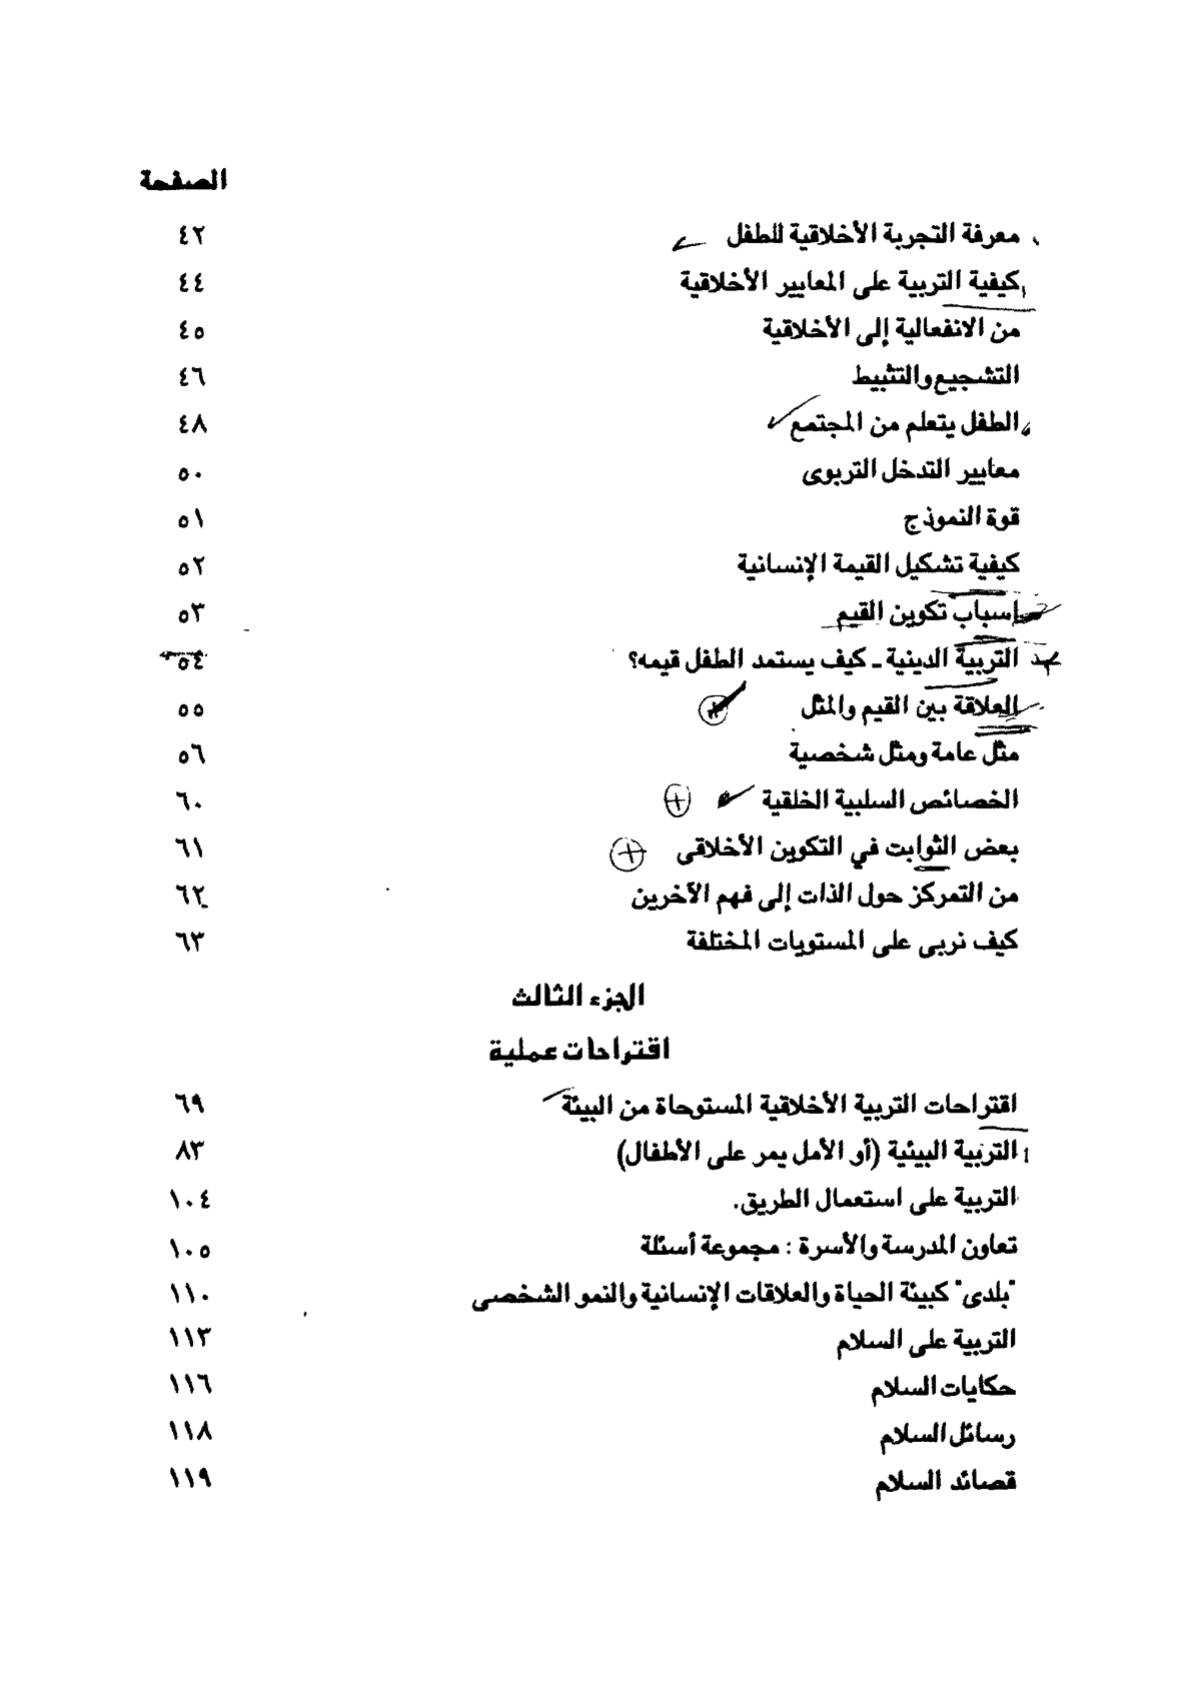 الصفحة
معرفة التجربة الأخلاقية للطفل ٤٢
كيفية التربية على المعايير الأخلاقية ٤٤
من الانفعالية إلى الأخلاقية ٤٥
التشجيع والتثبيط ٤٦
الطفل يتعلم من المجتمع ٤٨
معايير التدخل التربوى ٥٠
قوة النموذج ٥١
كيفية تشكيل القيمة الإنسانية ٥٢
أسباب تكوين القيم ٥٣
التربية الدينية ـ كيف يستمد الطفل قيمه؟ ٥٤
العلاقة بين القيم والمثل ٥٥
مثل عامة ومثل شخصية ٥٦
الخصائص السلبية الخلقية ٦٠
بعض الثوابت في التكوين الأخلاقى ٦١
من التمركز حول الذات إلى فهم الآخرين ٦٢
كيف نربى على المستويات المختلفة ٦٣
الجزء الثالث
اقتراحات عملية
اقتراحات التربية الأخلاقية المستوحاة من البيئة ٦٩
التربية البيئية (أو الأمل يمر على الأطفال) ٨٣
التربية على استعمال الطريق. ١٠٤
تعاون المدرسة والأسرة : مجموعة أسئلة ١٠٥
"بلدى" كبيئة الحياة والعلاقات الإنسانية والنمو الشخصى ١١٠
التربية على السلام ١١٣
حكايات السلام ١١٦
رسائل السلام ١١٨
قصائد السلام ١١٩